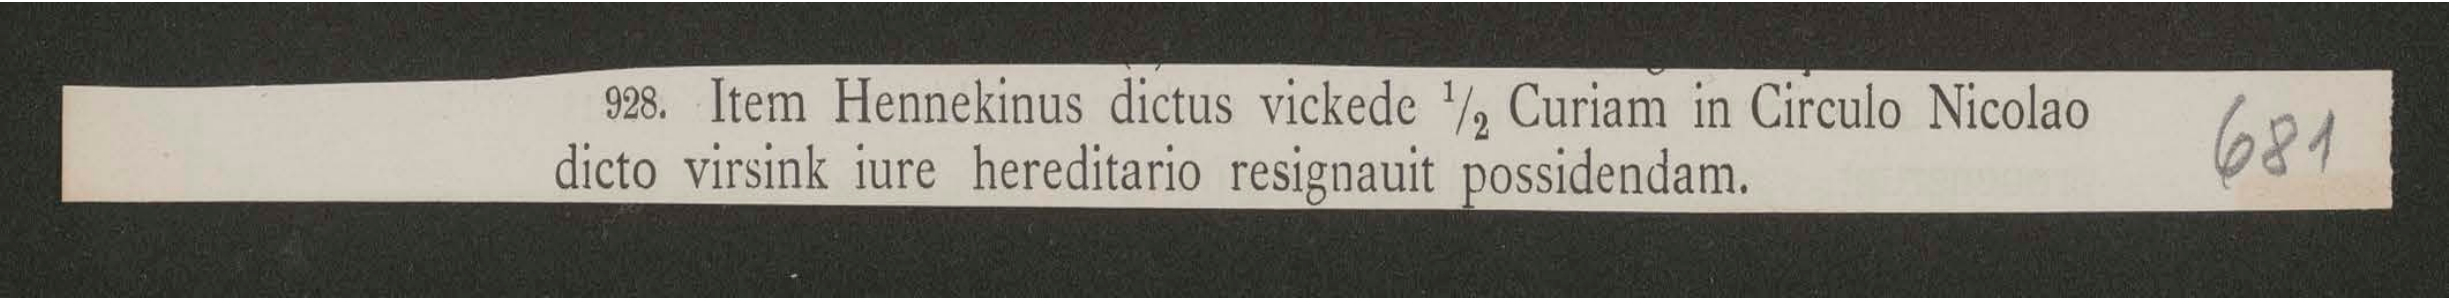 928. Item Hennekinus dictus vickede 1/2 Curiam in Circulo Nicolao 681
dicto virsink iure hereditario resignauit possidendam.